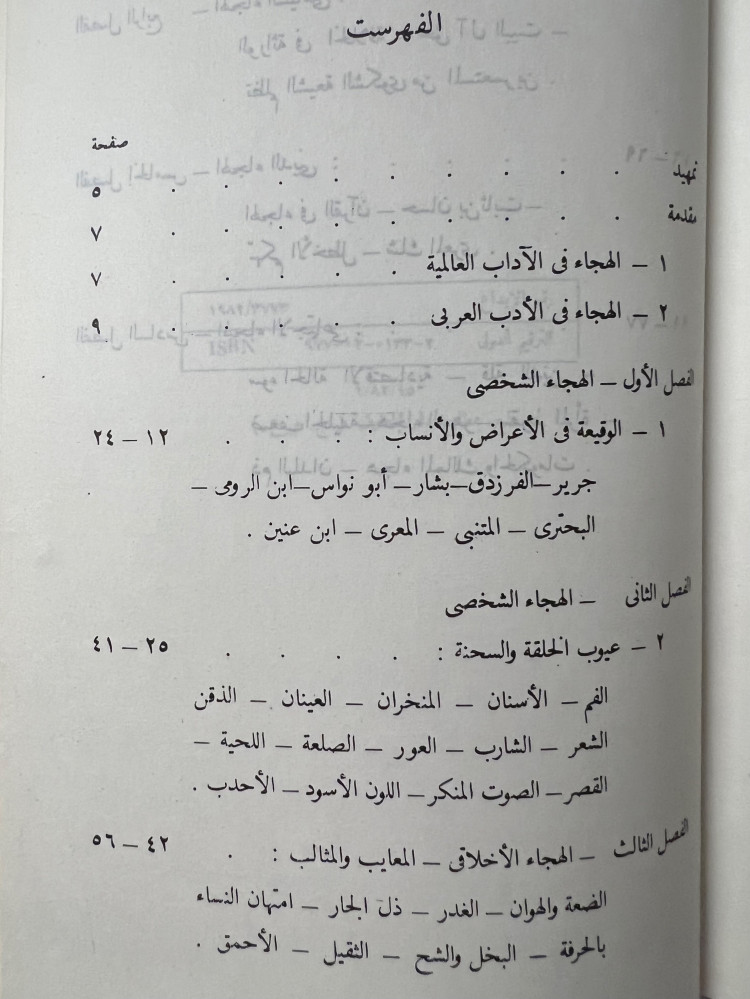 الفهرست
صفحة
تمهيد . . . . . . . . ٥
مقدمة . . . . . . . . ٧
١ – الهجاء فى الآداب العالمية . . . . . ٧
٢ – الهجاء فى الأدب العربى . . . . . ٩
الفصل الأول – الهجاء الشخصى
١ – الوقيعة فى الأعراض والأنساب : . . . ١٢ – ٢٤
جرير – الفرزدق – بشار – أبو نواس – ابن الرومى –
البحترى – المتنبى – المعرى – ابن عنين .
الفصل الثانى – الهجاء الشخصى
٢ – عيوب الخلقة والسحنة : . . . . ٢٥ – ٤١
الفم – الأسنان – المنخران – العينان – الذقن
الشعر – الشارب – العور – الصلعة – اللحية –
القصر – الصوت المنكر – اللون الأسود – الأحدب .
الفصل الثالث – الهجاء الأخلاقى – المعايب والمثالب : . ٤٢ – ٥٦
الضعة والهوان – الغدر – ذل الجار – امتهان النساء
بالحرفة – البخل والشح – الثقيل – الأحمق .